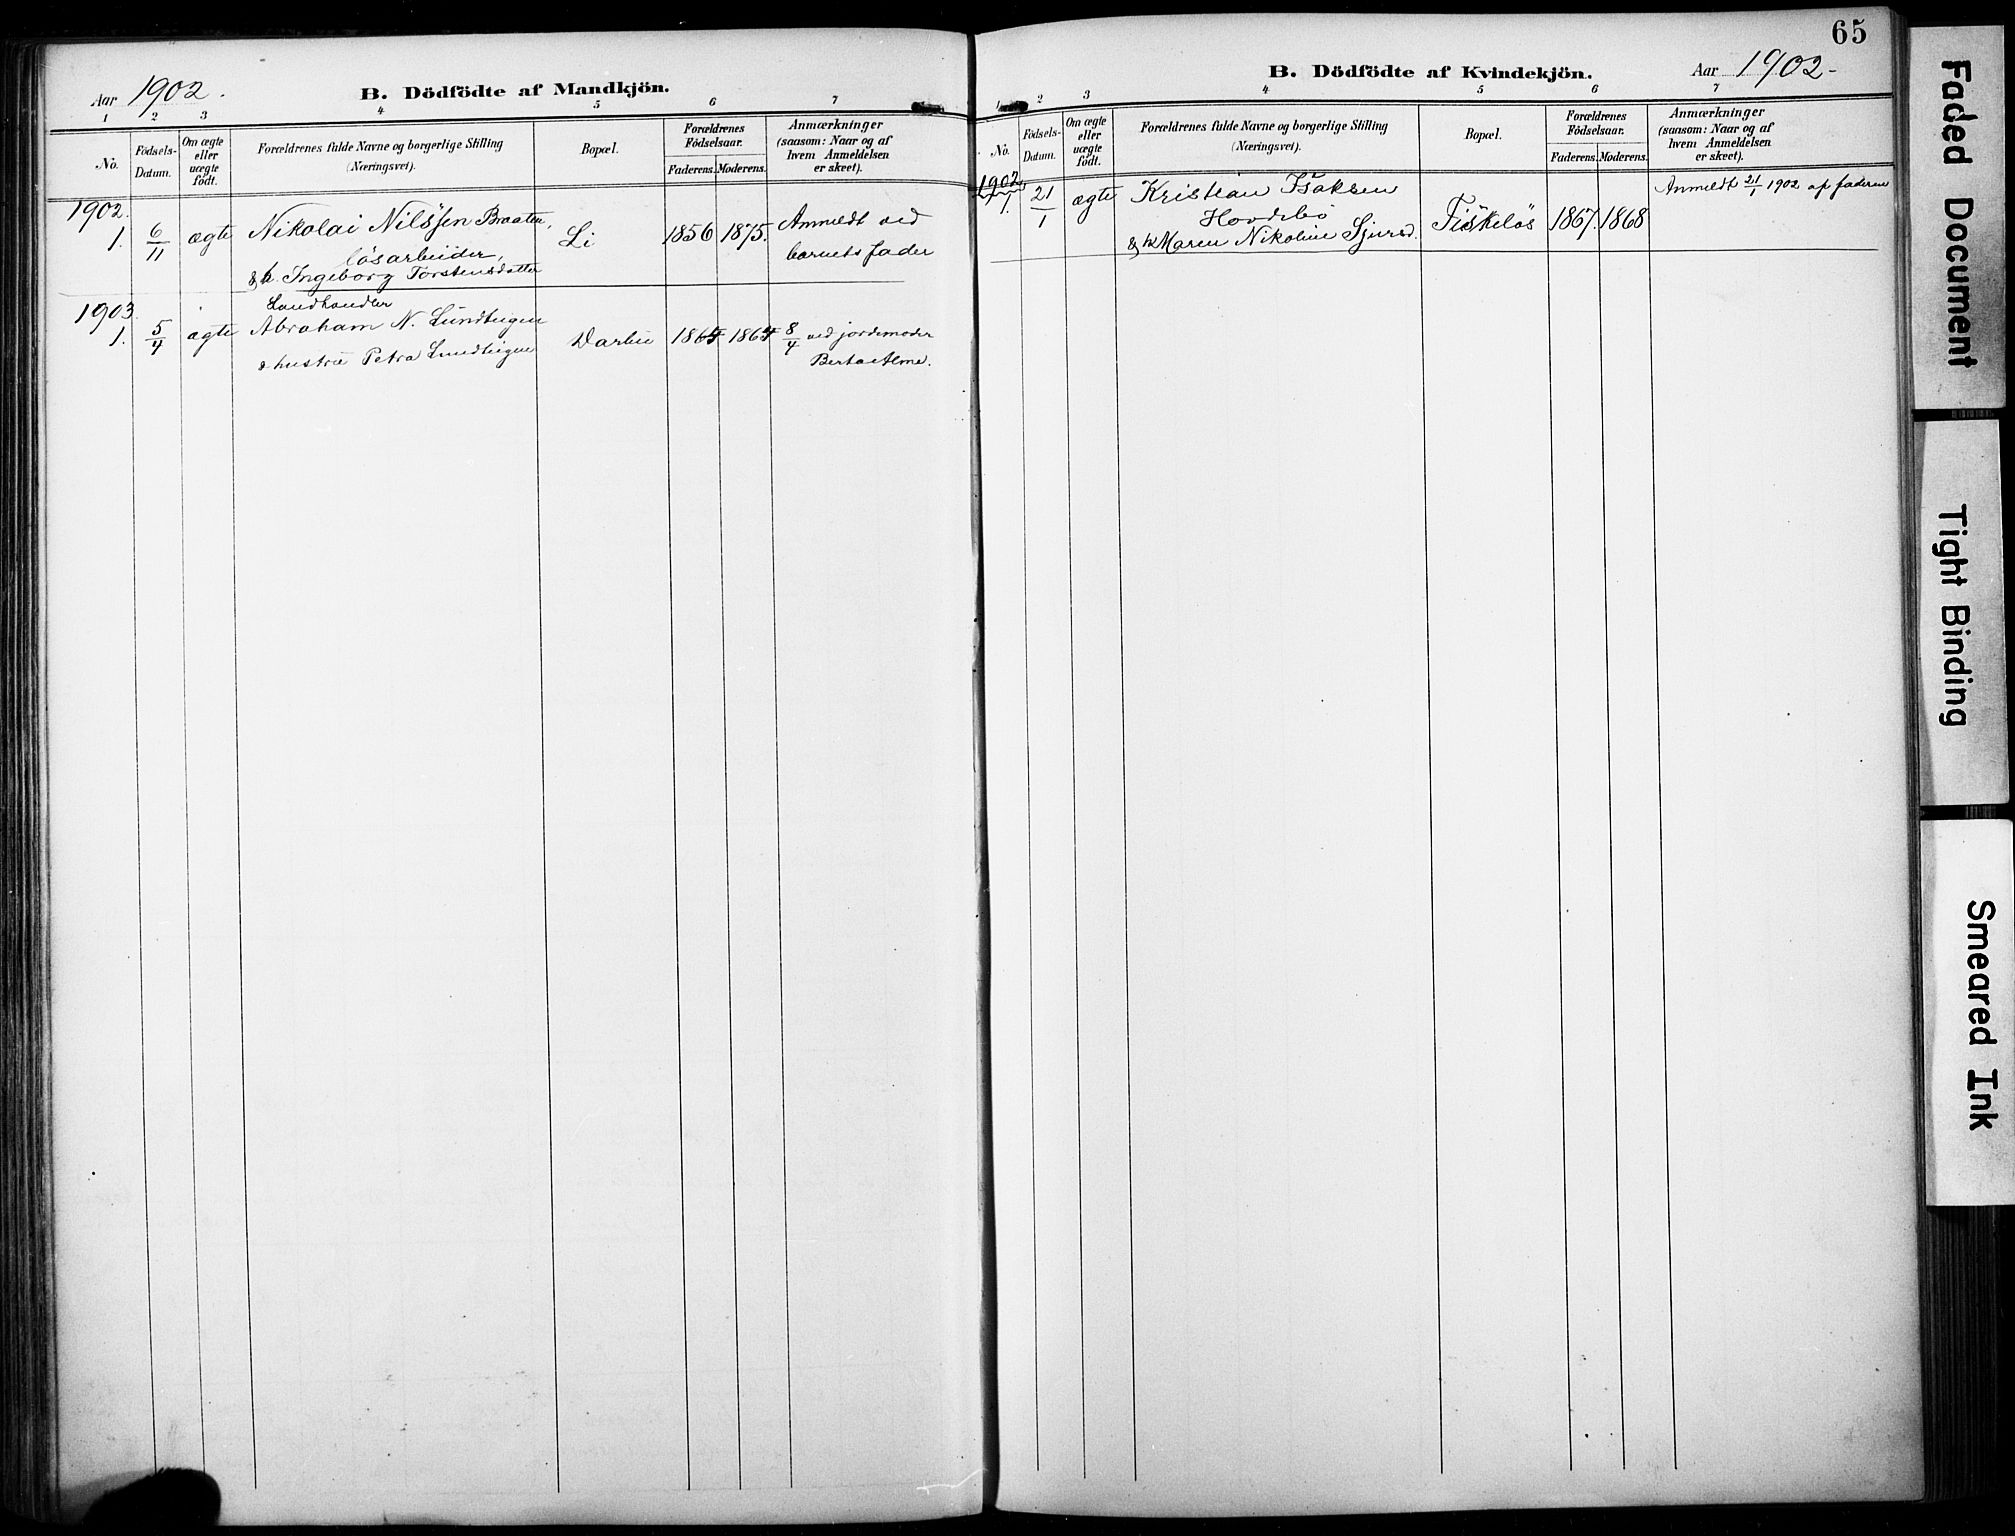 Aar 1902.
B. Dödfödte af Mandkjön.
1 2 3 4 5 6 7
No.
Födsels-
Datum.
Om ægte
eller
uægte
födt.
Forældrenes fulde Navne og borgerlige Stilling
(Næringsvei).
Bopæl.
Forældrenes
Födselsaar.
Faderens. Moderens.
Anmærkninger
(saasom: Naar og af
hvem Anmeldelsen
er skeet).
1902.
1. 6/11 ægte Nikolai Nilssen Braaten, Li 1856 1875. Anmeldt ved
lösarbeider, barnets fader
& h. Ingeborg Torstensdatter
1903.
Landhandler
1. 5/4 ægte Abraham N. Lundteigen Darbu 8/4 ved jordemoder
& hustru Petra Lundteigen Berta Alme.
65
B. Dödfödte af Kvindekjön.
Aar 1902-
1 2 3 4 5 6 7
No.
Födsels-
Datum.
Om ægte
eller
uægte
födt.
Forældrenes fulde Navne og borgerlige Stilling
(Næringsvei).
Bopæl.
Forældrenes
Födselsaar.
Faderens. Moderens.
Anmærkninger
(saasom: Naar og af
hvem Anmeldelsen
er skeet).
1902
1. 21/1 ægte Kristian Isaksen Fiskelös 1867. 1868 Anmeldt 21/1 1902 af faderen
Hovdebö
& h Maren Nikoline Sjursd.
Faded Document
Tight Binding
Smeared Ink